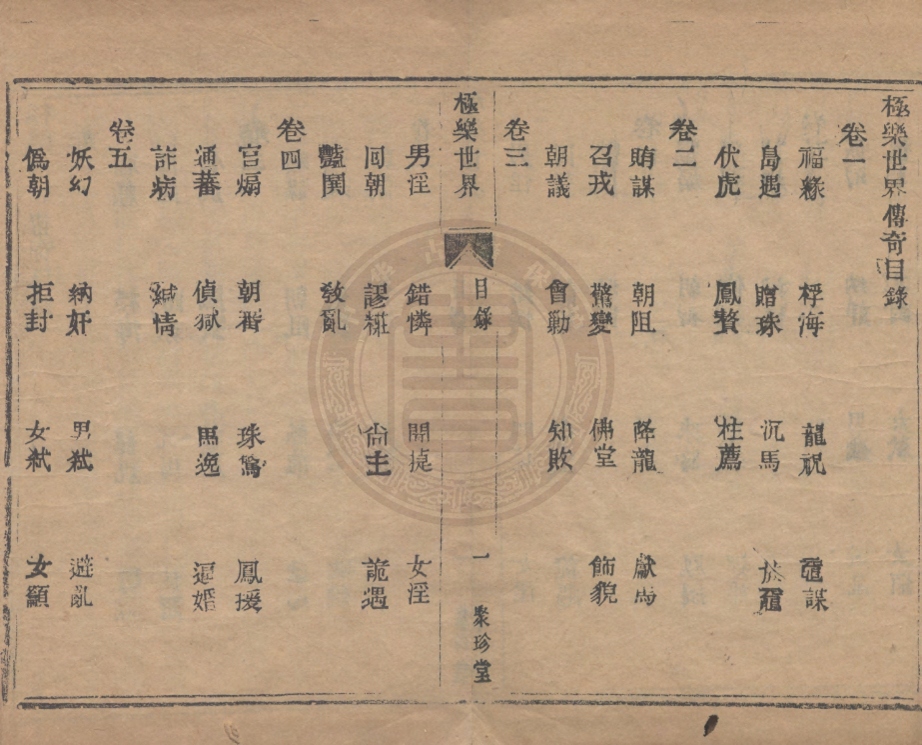 極樂世界傳奇目錄
卷一
福緣 桴海 龍祝 黿謀
島遇 贈珠 沉馬 放黿
伏虎 鳳贅 桂薦
卷二
賄謀 朝阻 降龍 獻馬
召戎 驚變 佛堂 飾貌
朝議 會勦 知敗
卷三
極樂世界
目錄
一
聚珍堂
男淫 錯憐 開捷 女淫
同朝 謬褫 尙主 詭遇
豔鬨 敎亂
卷四
宮煽 朝番 珠鴛 鳳援
通蕃 偵獄 馬逸 逼婚
詐病 緘情
卷五
妖幻 納奸 男弑 避亂
僞朝 拒封 女弑 女顧